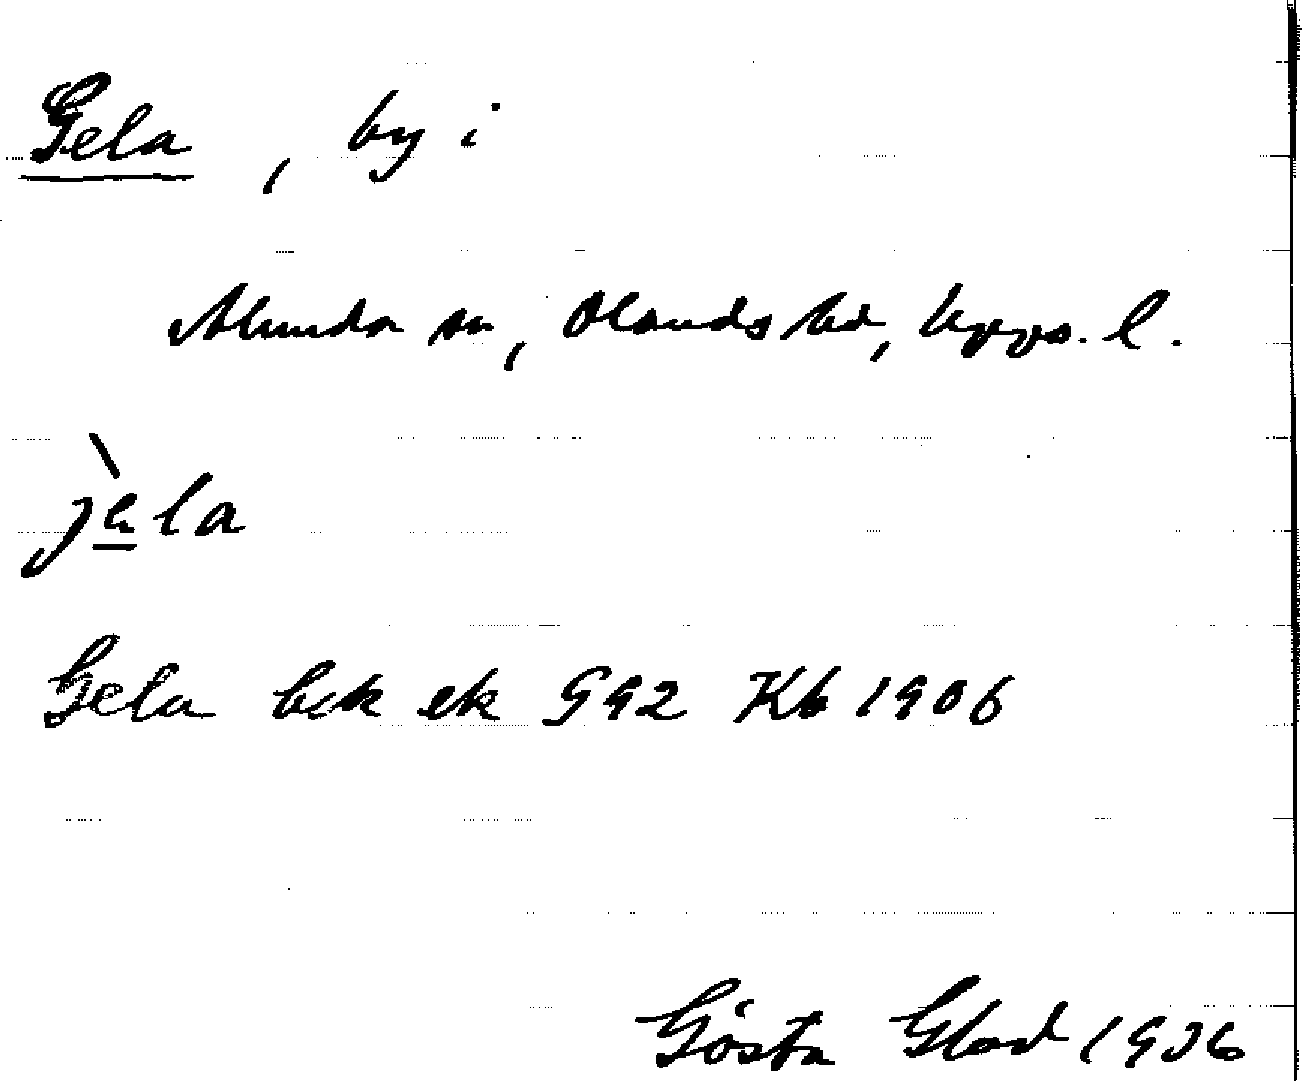 Gela, by i
Alunda sn, Olands hd, Upps. l.
jèla
Gela bek ek G92 Kb 1906
Gösta Glad 1936